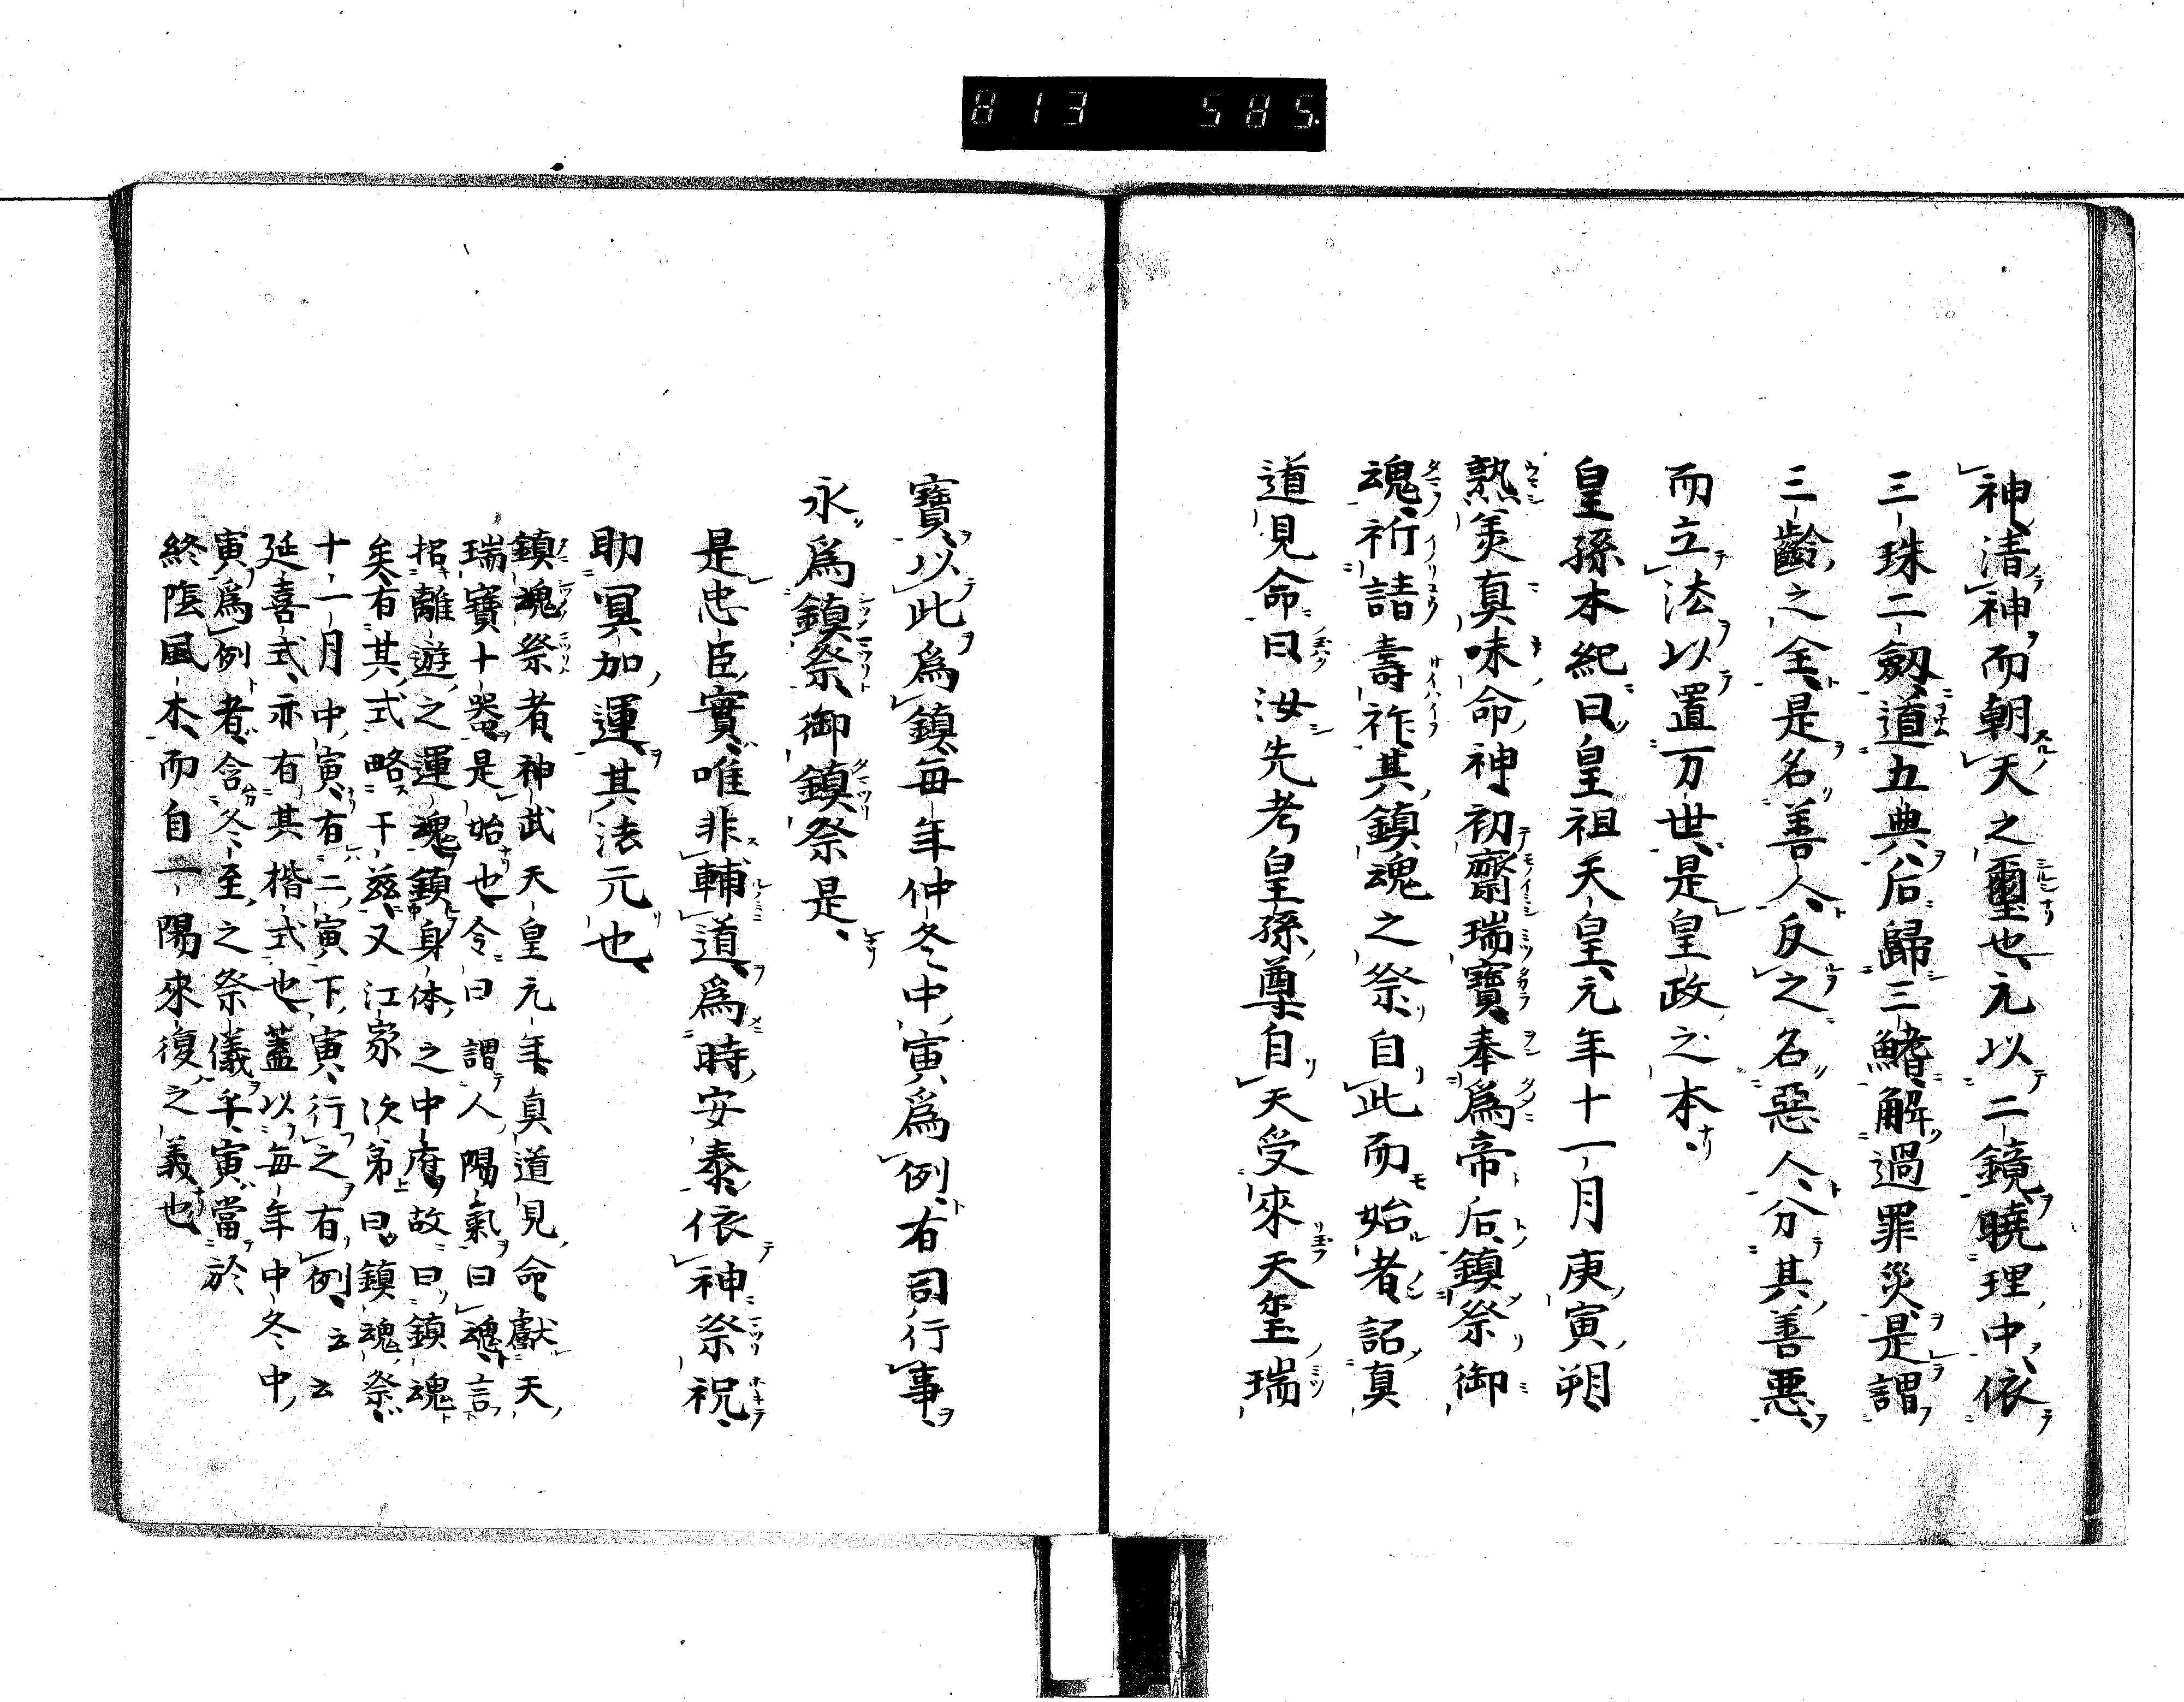 813 585.
神清神而朝天之璽也元以二鏡曉理中依
三珠二劔道五典八后歸三鰭解過罪災是謂
三齡之全是名善人反之名惡人分其善悪
而立法以置万世是皇政之本
皇孫本紀曰皇祖天皇元年十一月庚寅朔
熟美真味命神初齋瑞寶奉爲帝后鎮祭御
魂祈請壽祚其鎮魂之祭自此而始者詔真
道見命曰汝先考皇孫尊自天受來天璽瑞
寶以此爲鎮毎年仲冬中寅爲例有司行事
永爲鎮祭御鎮祭是
是忠臣實唯非輔道爲時安泰依神祭祝
助冥加運其法元也
鎮魂祭者神武天皇元年真道見命獻天
瑞寶十器是始也令曰謂人陽氣曰魂言
招離遊之運魂鎮身体之中府故曰鎮魂
矣有其式略于茲又江家次第曰鎮魂祭
十一月中寅有二寅下寅行之有例云云
延喜式亦有其楷式也蓋以毎年中冬中
寅爲例者含冬至之祭儀乎寅當於
終陰風木而自一陽來復之義也